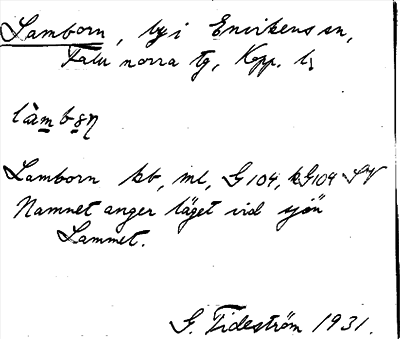 Lamborn, by i Envikens sn,
Falu norra tg, Kopp. l.
làmbəɳ
Lamborn kb, ml, G 104, kG104 SV
Namnet anger läget vid sjön
Lammet.
G. Tideström 1931.